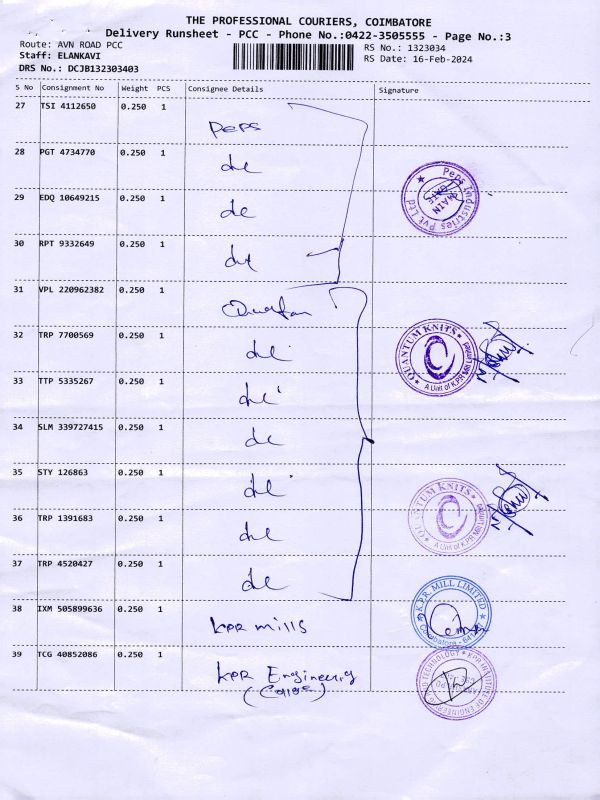 THE PROFESSIONAL COURIERS, COIMBATORE
Delivery Runsheet - PCC - Phone No.:0422-3505555 - Page No.:3
Route: AVN ROAD PCC
RS No.: 1323034
Staff: ELANKAVI
RS Date: 16-Feb-2024
DRS No.: DCJB132303403
S No Consignment No Weight PCS Consignee Details Signature
27 TSI 4112650 0.250 1
Peps
28 PGT 4734770 0.250 1
do
Peps Industries Pvt Ltd
MAIN GATE
29 EDQ 10649215 0.250 1
do
30 RPT 9332649 0.250 1
do
31 VPL 220962382 0.250 1
Quantum
32 TRP 7700569 0.250 1
do
QUANTUM KNITS
A Unit of K.P.R Mill Limited
33 TTP 5335267 0.250 1
do
34 SLM 339727415 0.250 1
do
35 STY 126863 0.250 1
do
QUANTUM KNITS
A Unit of K.P.R Mill Limited
36 TRP 1391683 0.250 1
do
37 TRP 4520427 0.250 1
do
38 IXM 505899636 0.250 1
KPR mills
K.P.R. MILL LIMITED
Coimbatore - 641
39 TCG 40852086 0.250 1
KPR Engineering
(College)
KPR INSTITUTE OF ENGINEERING AND TECHNOLOGY